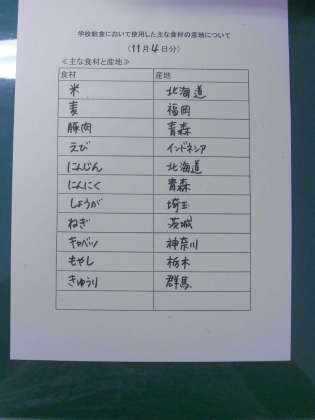 学校給食において使用した主な食材の産地について
（11月4日分）
≪主な食材と産地≫
食材 産地
米 北海道
麦 福岡
豚肉 青森
えび インドネシア
にんじん 北海道
にんにく 青森
しょうが 埼玉
ねぎ 茨城
キャベツ 神奈川
もやし 栃木
きゅうり 群馬